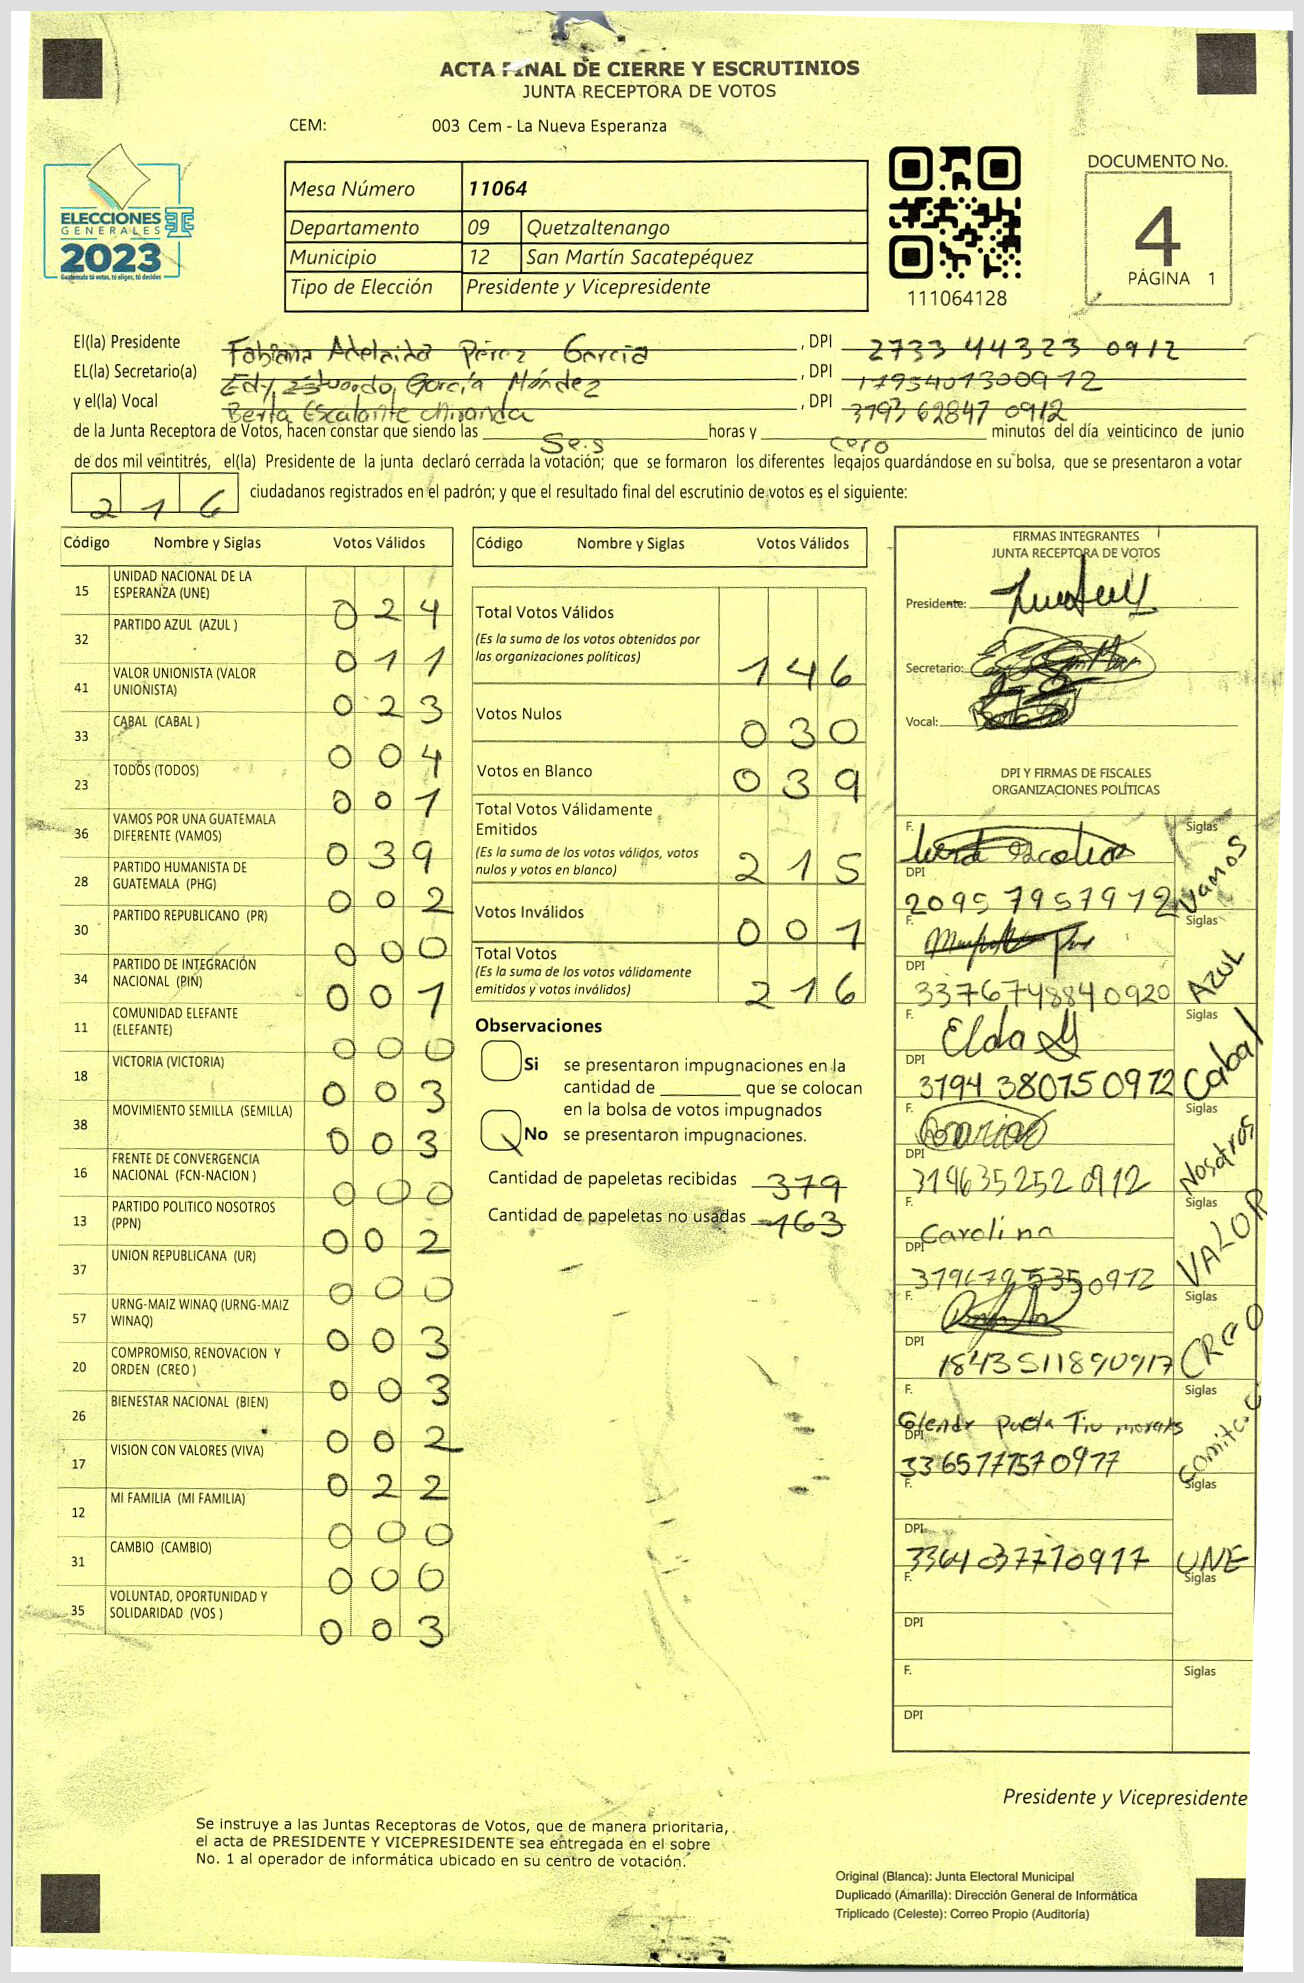 ACTA FINAL DE CIERRE Y ESCRUTINIOS
JUNTA RECEPTORA DE VOTOS
CEM: 003 Cem - La Nueva Esperanza
ELECCIONES
GENERALES
2023
Guatemala tú votas, tú eliges, tú decides
Mesa Número 11064
Departamento 09 Quetzaltenango
Municipio 12 San Martín Sacatepéquez
Tipo de Elección Presidente y Vicepresidente
111064128
DOCUMENTO No.
4
PÁGINA 1
El(la) Presidente Fabiana Adelaida Pérez García, DPI 2733 44323 0912
EL(la) Secretario(a) Edy Estuardo García Méndez, DPI 1795401300912
y el(la) Vocal Berta Escalante Miranda, DPI 3193 62847 0912
de la Junta Receptora de Votos, hacen constar que siendo las Seis horas y cero minutos del día veinticinco de junio
de dos mil veintitrés, el(la) Presidente de la junta declaró cerrada la votación; que se formaron los diferentes legajos guardándose en su bolsa, que se presentaron a votar
216 ciudadanos registrados en el padrón; y que el resultado final del escrutinio de votos es el siguiente:
Código Nombre y Siglas Votos Válidos
15 UNIDAD NACIONAL DE LA ESPERANZA (UNE) 024
32 PARTIDO AZUL (AZUL ) 011
41 VALOR UNIONISTA (VALOR UNIONISTA) 023
33 CABAL (CABAL ) 004
23 TODOS (TODOS) 001
36 VAMOS POR UNA GUATEMALA DIFERENTE (VAMOS) 039
28 PARTIDO HUMANISTA DE GUATEMALA (PHG) 002
30 PARTIDO REPUBLICANO (PR) 000
34 PARTIDO DE INTEGRACIÓN NACIONAL (PIN) 001
11 COMUNIDAD ELEFANTE (ELEFANTE) 000
18 VICTORIA (VICTORIA) 003
38 MOVIMIENTO SEMILLA (SEMILLA) 003
16 FRENTE DE CONVERGENCIA NACIONAL (FCN-NACION ) 000
13 PARTIDO POLITICO NOSOTROS (PPN) 002
37 UNION REPUBLICANA (UR) 000
57 URNG-MAIZ WINAQ (URNG-MAIZ WINAQ) 003
20 COMPROMISO, RENOVACION Y ORDEN (CREO ) 003
26 BIENESTAR NACIONAL (BIEN) 002
17 VISION CON VALORES (VIVA) 022
12 MI FAMILIA (MI FAMILIA) 000
31 CAMBIO (CAMBIO) 000
35 VOLUNTAD, OPORTUNIDAD Y SOLIDARIDAD (VOS ) 003
Código Nombre y Siglas Votos Válidos
Total Votos Válidos 146
(Es la suma de los votos obtenidos por
las organizaciones políticas)
Votos Nulos 030
Votos en Blanco 039
Total Votos Válidamente
Emitidos 215
(Es la suma de los votos válidos, votos
nulos y votos en blanco)
Votos Inválidos 001
Total Votos 216
(Es la suma de los votos válidamente
emitidos y votos inválidos)
Observaciones
Si se presentaron impugnaciones en la
cantidad de ________ que se colocan
en la bolsa de votos impugnados
No se presentaron impugnaciones.
Cantidad de papeletas recibidas 379
Cantidad de papeletas no usadas 163
FIRMAS INTEGRANTES
JUNTA RECEPTORA DE VOTOS
Presidente:
Secretario:
Vocal:
DPI Y FIRMAS DE FISCALES
ORGANIZACIONES POLÍTICAS
F. Siglas Vamos
DPI 2095 7957912
F. Siglas AZUL
DPI 3376748840920
F. Elda Siglas Cabal
DPI 3194 380750912
F. Siglas Nosotros
DPI 3196352520912
F. Carolina Siglas VALOR
DPI
F. Siglas CREO
DPI 1843511890917
F. Siglas
DPI
F. Siglas UNE
DPI 3364037770917
F. Siglas
DPI
F. Siglas
DPI
Presidente y Vicepresidente
Se instruye a las Juntas Receptoras de Votos, que de manera prioritaria,
el acta de PRESIDENTE Y VICEPRESIDENTE sea entregada en el sobre
No. 1 al operador de informática ubicado en su centro de votación.
Original (Blanca): Junta Electoral Municipal
Duplicado (Amarilla): Dirección General de Informática
Triplicado (Celeste): Correo Propio (Auditoría)